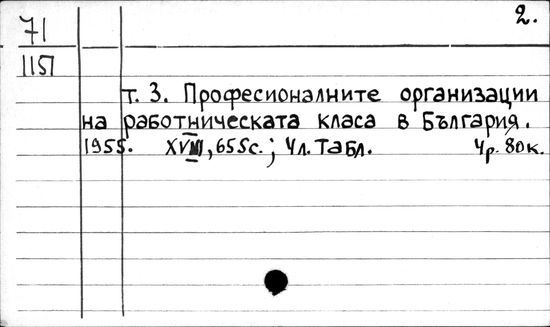 71
2.
1151
т. 3. Професионалните организации
на работническата класа в България.
1955. XVIII, 655с.; 4л. табл. 4р. 80к.